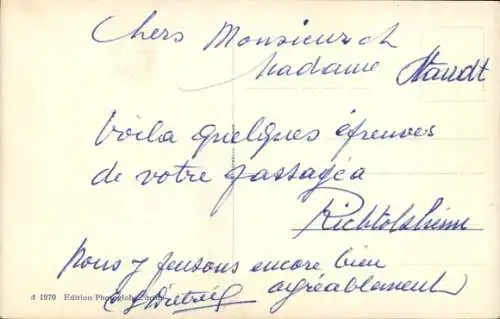 Chers Monsieur et
Madame Staudt
Voila quelques épreuves
de votre passage a
Richtolsheim
Nous y pensons encore bien
agréablement
d 1970 Edition Photoglob